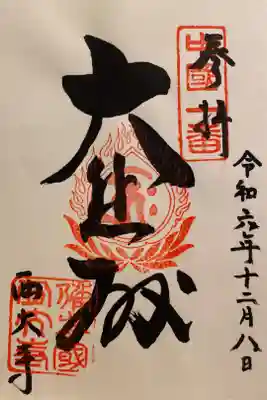 令和六年十二月八日
奉拝
中國一番
大悲殿
西大寺